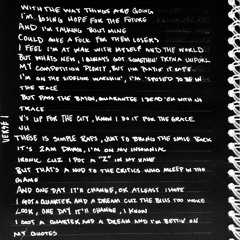 WITH THE WAY THINGS ARE GOING
I'M LOSING HOPE FOR THE FUTURE
AND I'M TALKING 'BOUT MINE
COULD GIVE A FUCK FOR THEM LOSERS
I FEEL I'M AT WAR WITH MYSELF AND THE WORLD
BUT WHATS NEW, I ALWAYS GOT SOMETHIN' TRYNA UNFURL
MY COMPETITION PLENTY, BUT I'M PLAYIN' IT SAFE
I'M ON THE SIDELINE WARMIN', I'M 'SPOSED TO BE IN
THE RACE
BUT PASS THE BATON, GUARANTEE I DEAD 'EM WITH NO
TRACE
V'S UP FOR THE CITY, KNOW I DO IT FOR THE GRACE
UH
THESE IS SIMPLE RAPS, JUST TO BRING THE SMILE BACK
IT'S 2AM DAWG, I'M ON MY INSOMNIAC
IRONIC CUZ I PUT A "Z" IN MY NAME
BUT THAT'S A NOD TO THE CRITICS WHO SLEEP IN THE
GAME
AND ONE DAY IT'LL CHANGE, OR ATLEAST I HOPE
I GOT A QUARTER AND A DREAM CUZ THE BILLS TOO WOKE
LOOK, ONE DAY IT'LL CHANGE, I KNOW
I GOT A QUARTER AND A DREAM AND I'M BETTIN' ON
MY QUOTES
VERSE 1